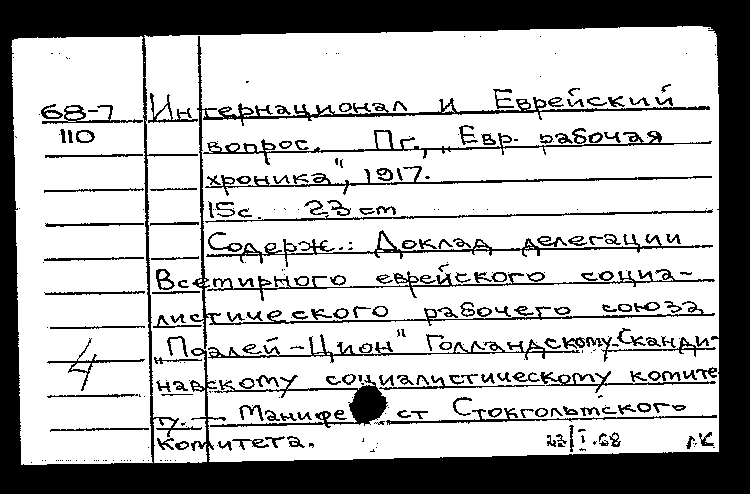 68-7 Интернационал и Еврейский
110 вопрос. Пг., „Евр. рабочая
хроника", 1917.
15с. 23 cm
Содерж.: Доклад делегации
Всетирного еврейского социа-
листического рабочего союза
„Поалей-Цион" Голландскому-Сканди-
4
навскому социалистическому комите
ту. — Манифест Стокгольтского
котитета. 23/I.68 ЛК